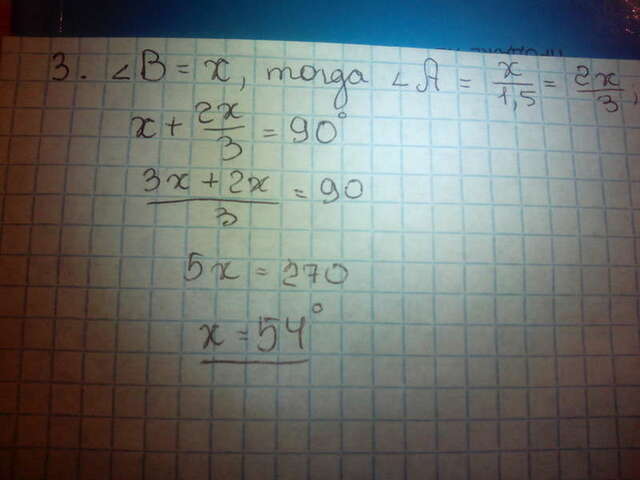 3. ∠B = x, тогда ∠A = x/1,5 = 2x/3;
x + 2x/3 = 90°
3x + 2x/3 = 90
5x = 270
x = 54°